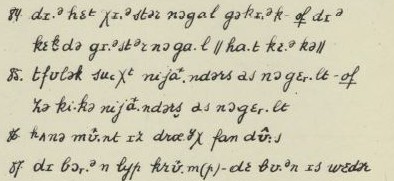 84. dɪ.ᵊ hɛt χɪ.ᵊstər nəgal gəkɪ.ᵊk- of dɪᵊ
kɛtdə gɪ.ᵊstər nəga.l // ha.t kɛ.ᵊkə//
85. tfulək suχt nijâ.ndərs as nəgɛr.lt - of
zə ki.kə nijâ.ndərs as nəgɛr.lt
86. hʌnə mû.nt ɪz drœ.ʏχ fan dû:s
87. dɪ bər.ᵊn lyp krû.m(p)-dɛ bu.ᵊn ɪs wɛdər